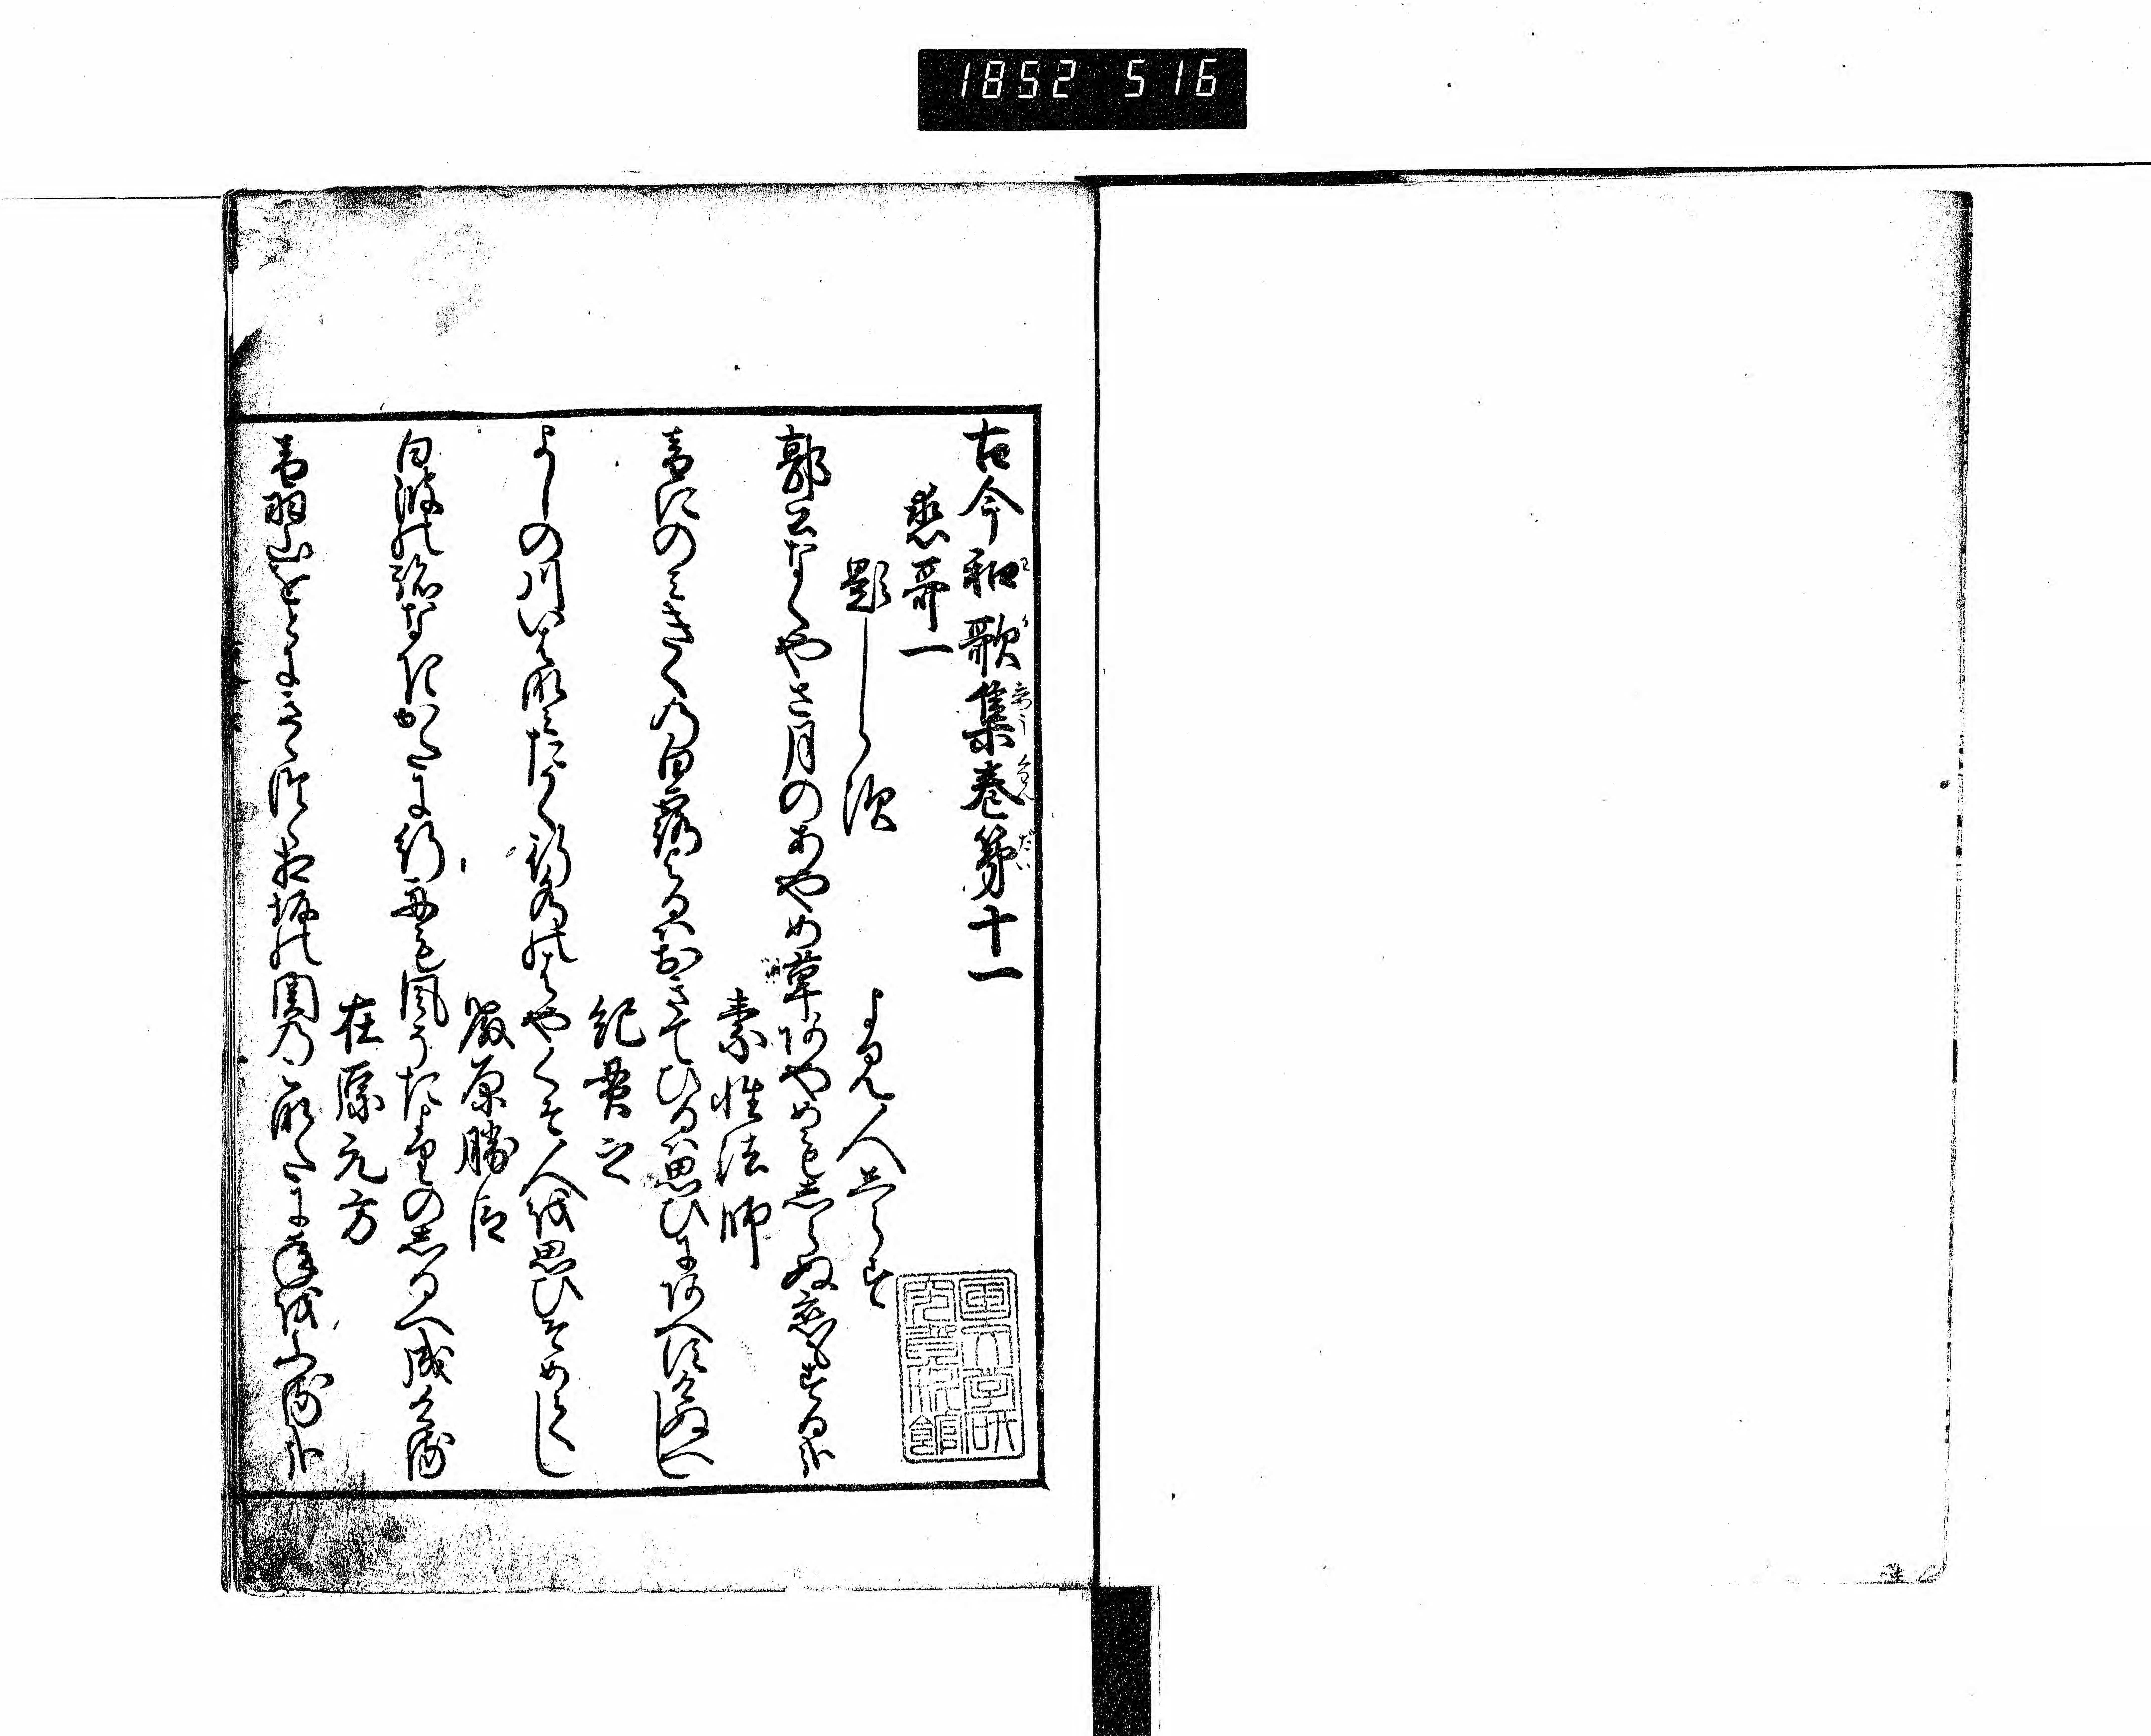 1852 516
古今和歌集巻第十一
恋哥一
題しらす
よみ人しらす
郭公なくやさ月のあやめ草あやめもしらぬ恋もする哉
素性法師
音にのみきくの白露よるはおきてひるは思ひにあへすけぬへし
紀貫之
よしの川いは波たかく行水のはやくそ人を思ひそめてし
藤原勝臣
白波の跡なきかたに行舟も風そたよりのしるへ成ける
在原元方
音羽山をとにきゝつゝ相坂の関のこなたに年をふる哉